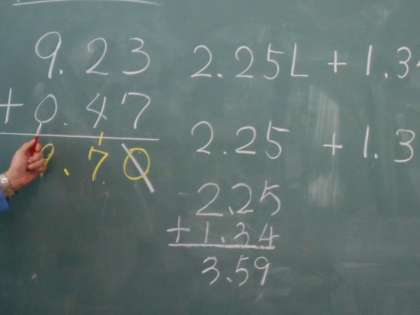 9.23
+0.47
9.70
2.25L + 1.3
2.25 + 1.3
2.25
+1.34
3.59